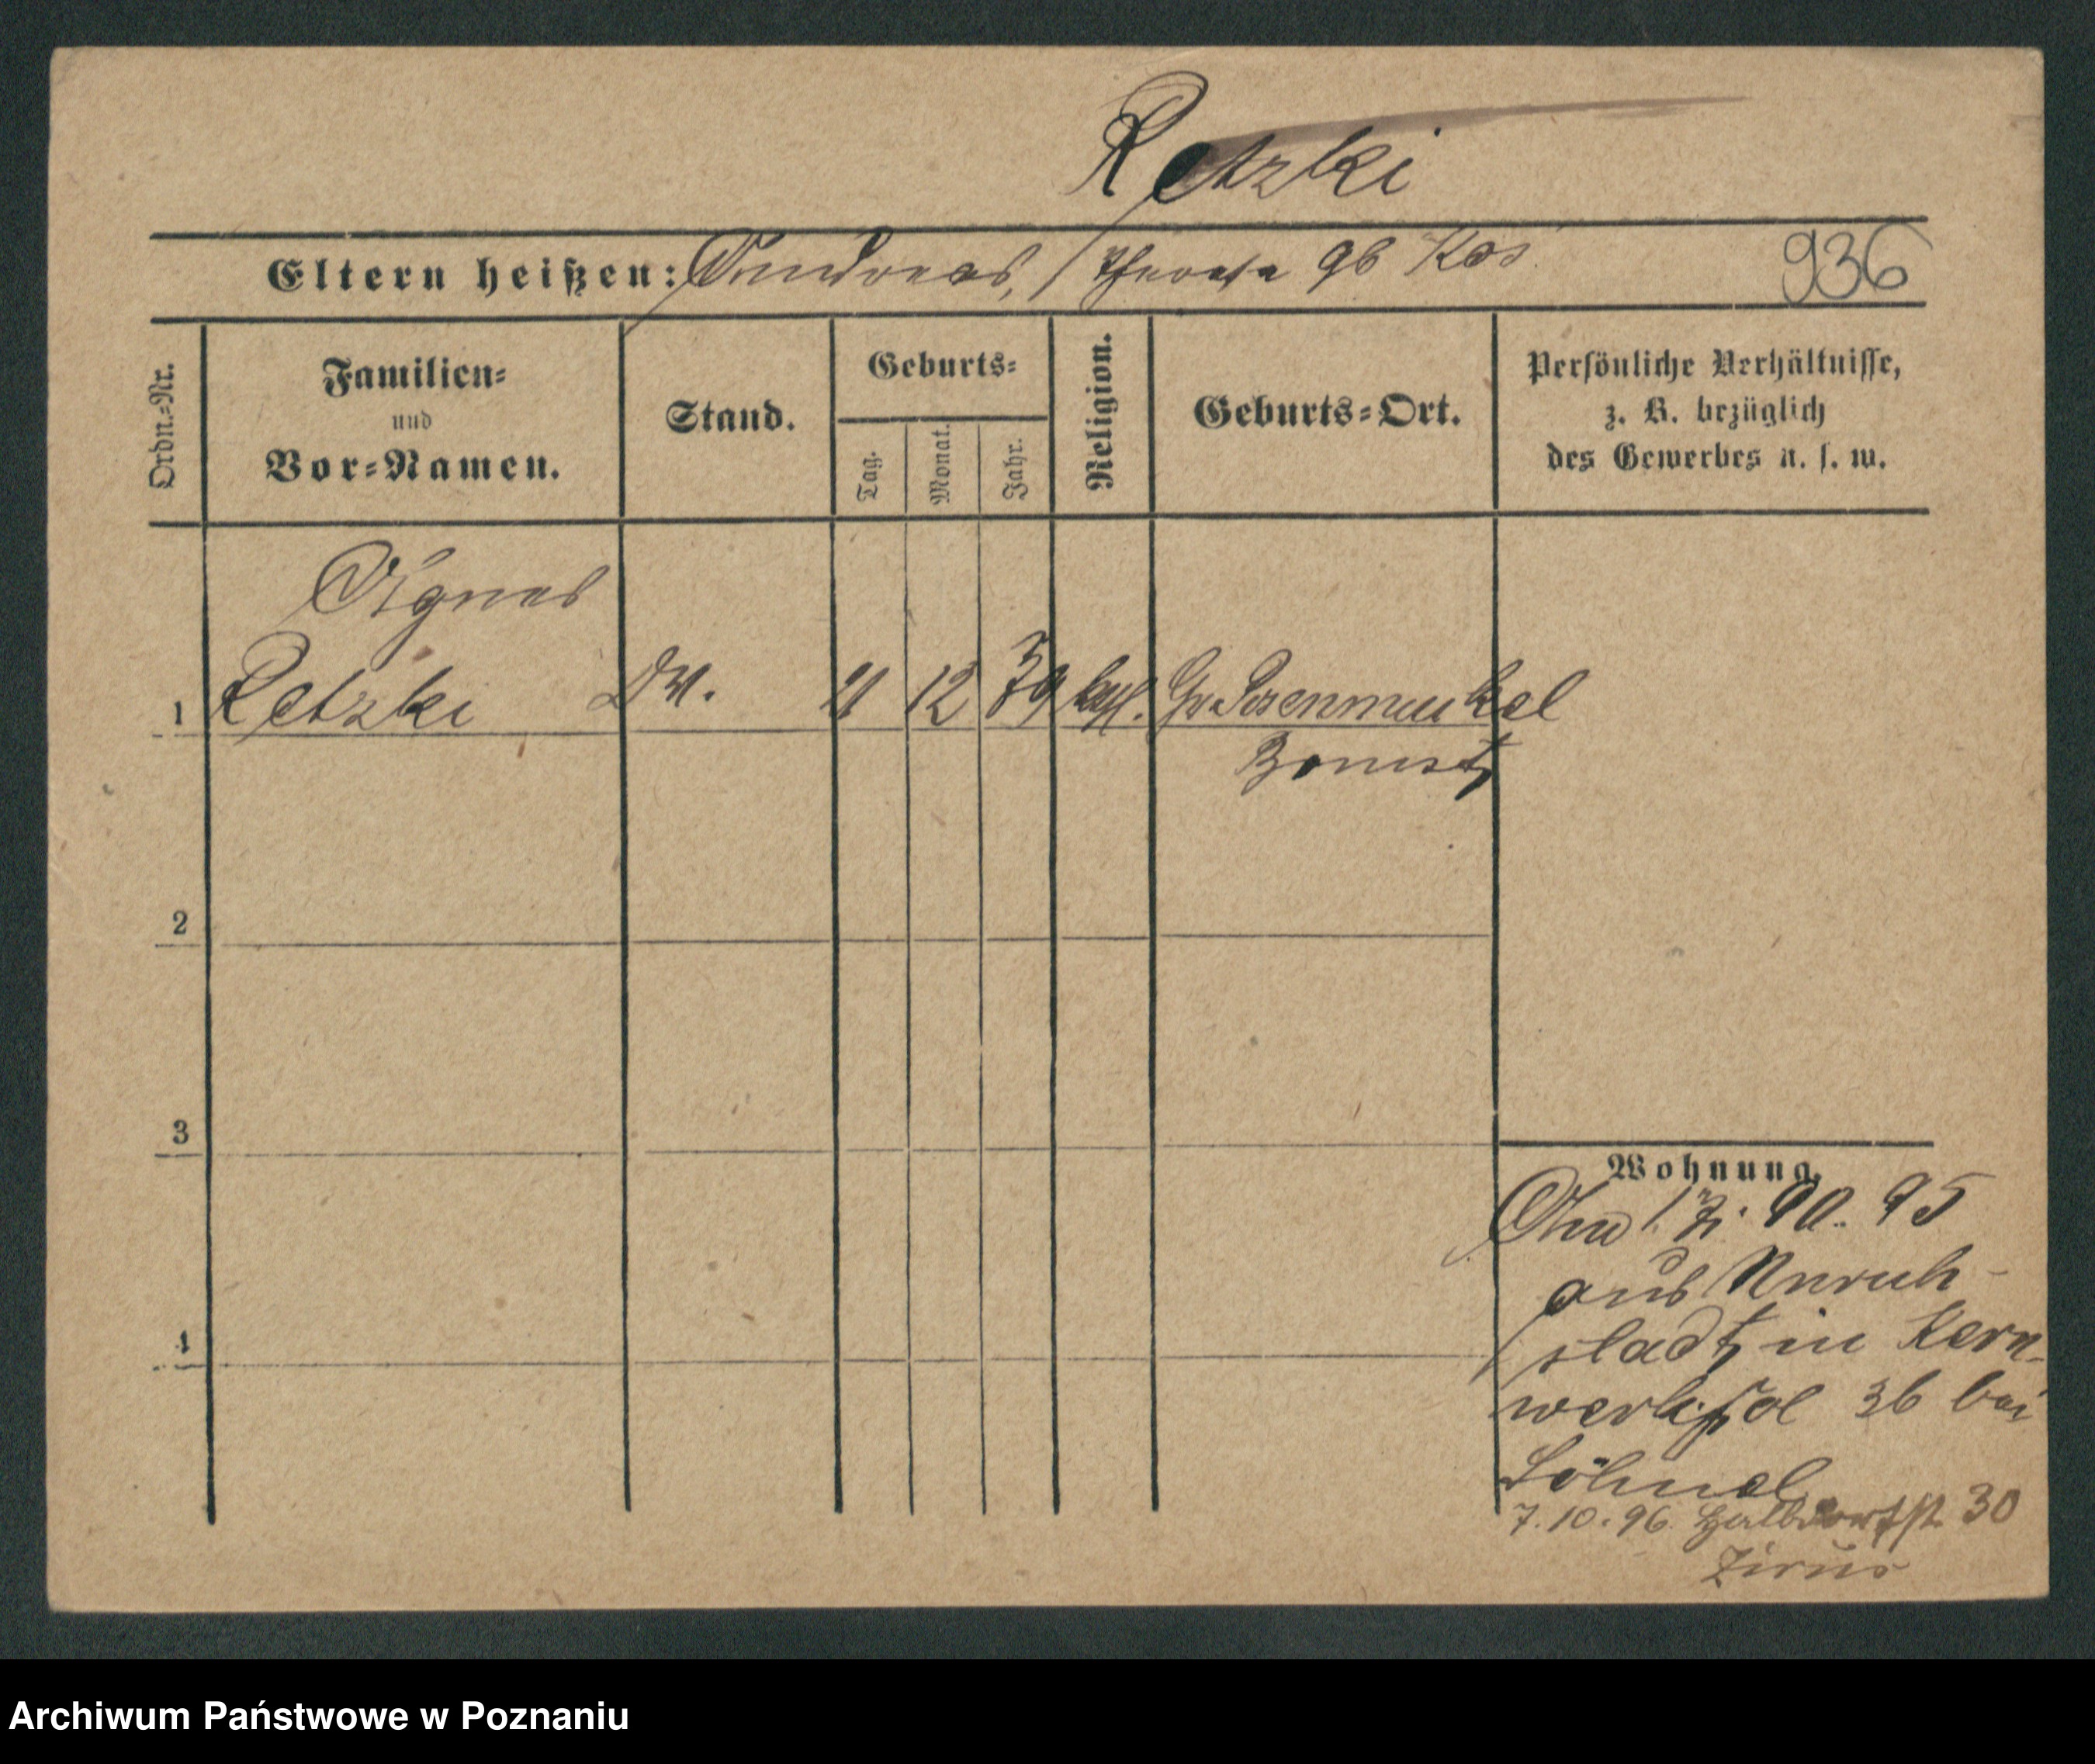 Retzki
Eltern heißen: Andreas, Theresa gb Kos
936
Ordn.-Nr.
Familien-
und
Vor-Namen.
Stand.
Geburts-
Tag.
Monat.
Jahr.
Religion.
Geburts-Ort.
Persönliche Verhältnisse,
z. B. bezüglich
des Gewerbes u. s. w.
Agnes
1 Retzki 21 12 79 kath. Gr Posemuckel
Bomst
2
3
4
Wohnung.
95
aus Unruh-
stadt in Kern-
werksol 36 bei
Löhnel
7.10.96. Halbdorfst. 30
Zirus
Archiwum Państwowe w Poznaniu